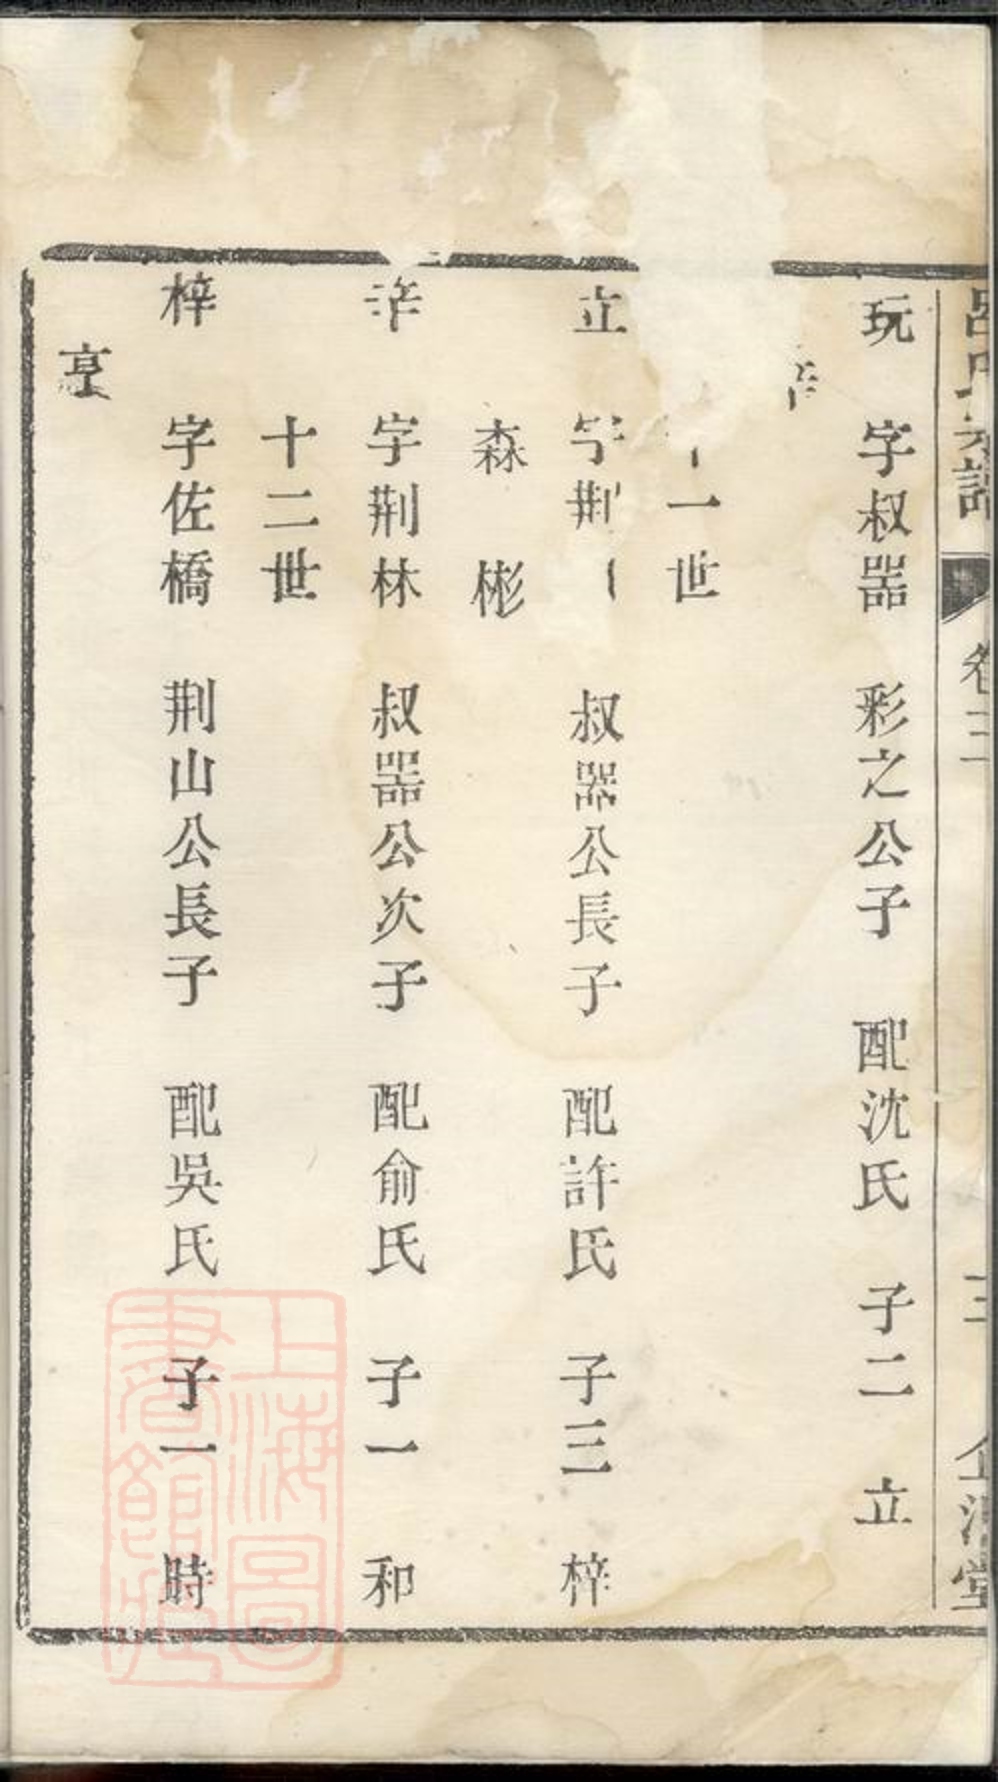 呂氏宗譜 卷三 三 堂
玩 字叔器 彩之公子 配沈氏 子二 立
一世
立 字荆 叔器公長子 配許氏 子三 梓
森 彬
字荆林 叔器公次子 配俞氏 子一 和
十二世
梓 字佐橋 荆山公長子 配吳氏 子一 時
亨
上海圖書館藏